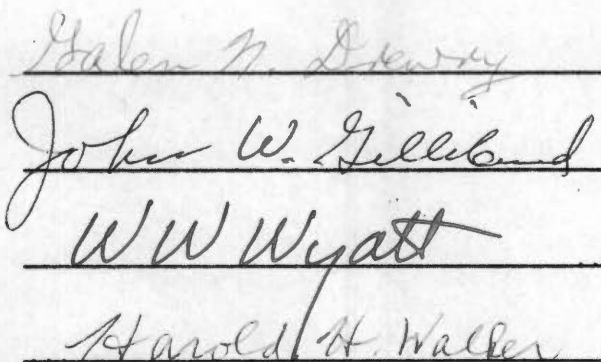 Galen N. Drewry
John W. Gilliland
W W Wyatt
Harold H. Walker